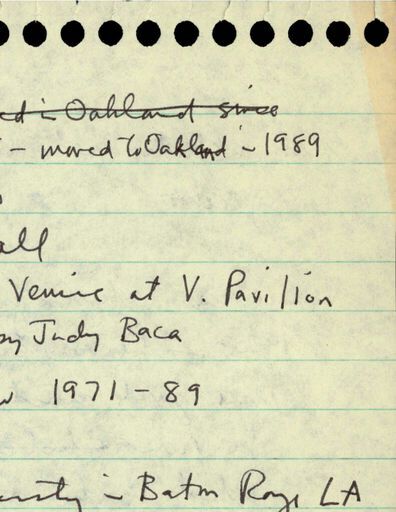 ed in Oakland since
- moved to Oakland in 1989
all
Venice at V. Pavilion
by Judy Baca
w 1971-89
ersity in Baton Rouge LA